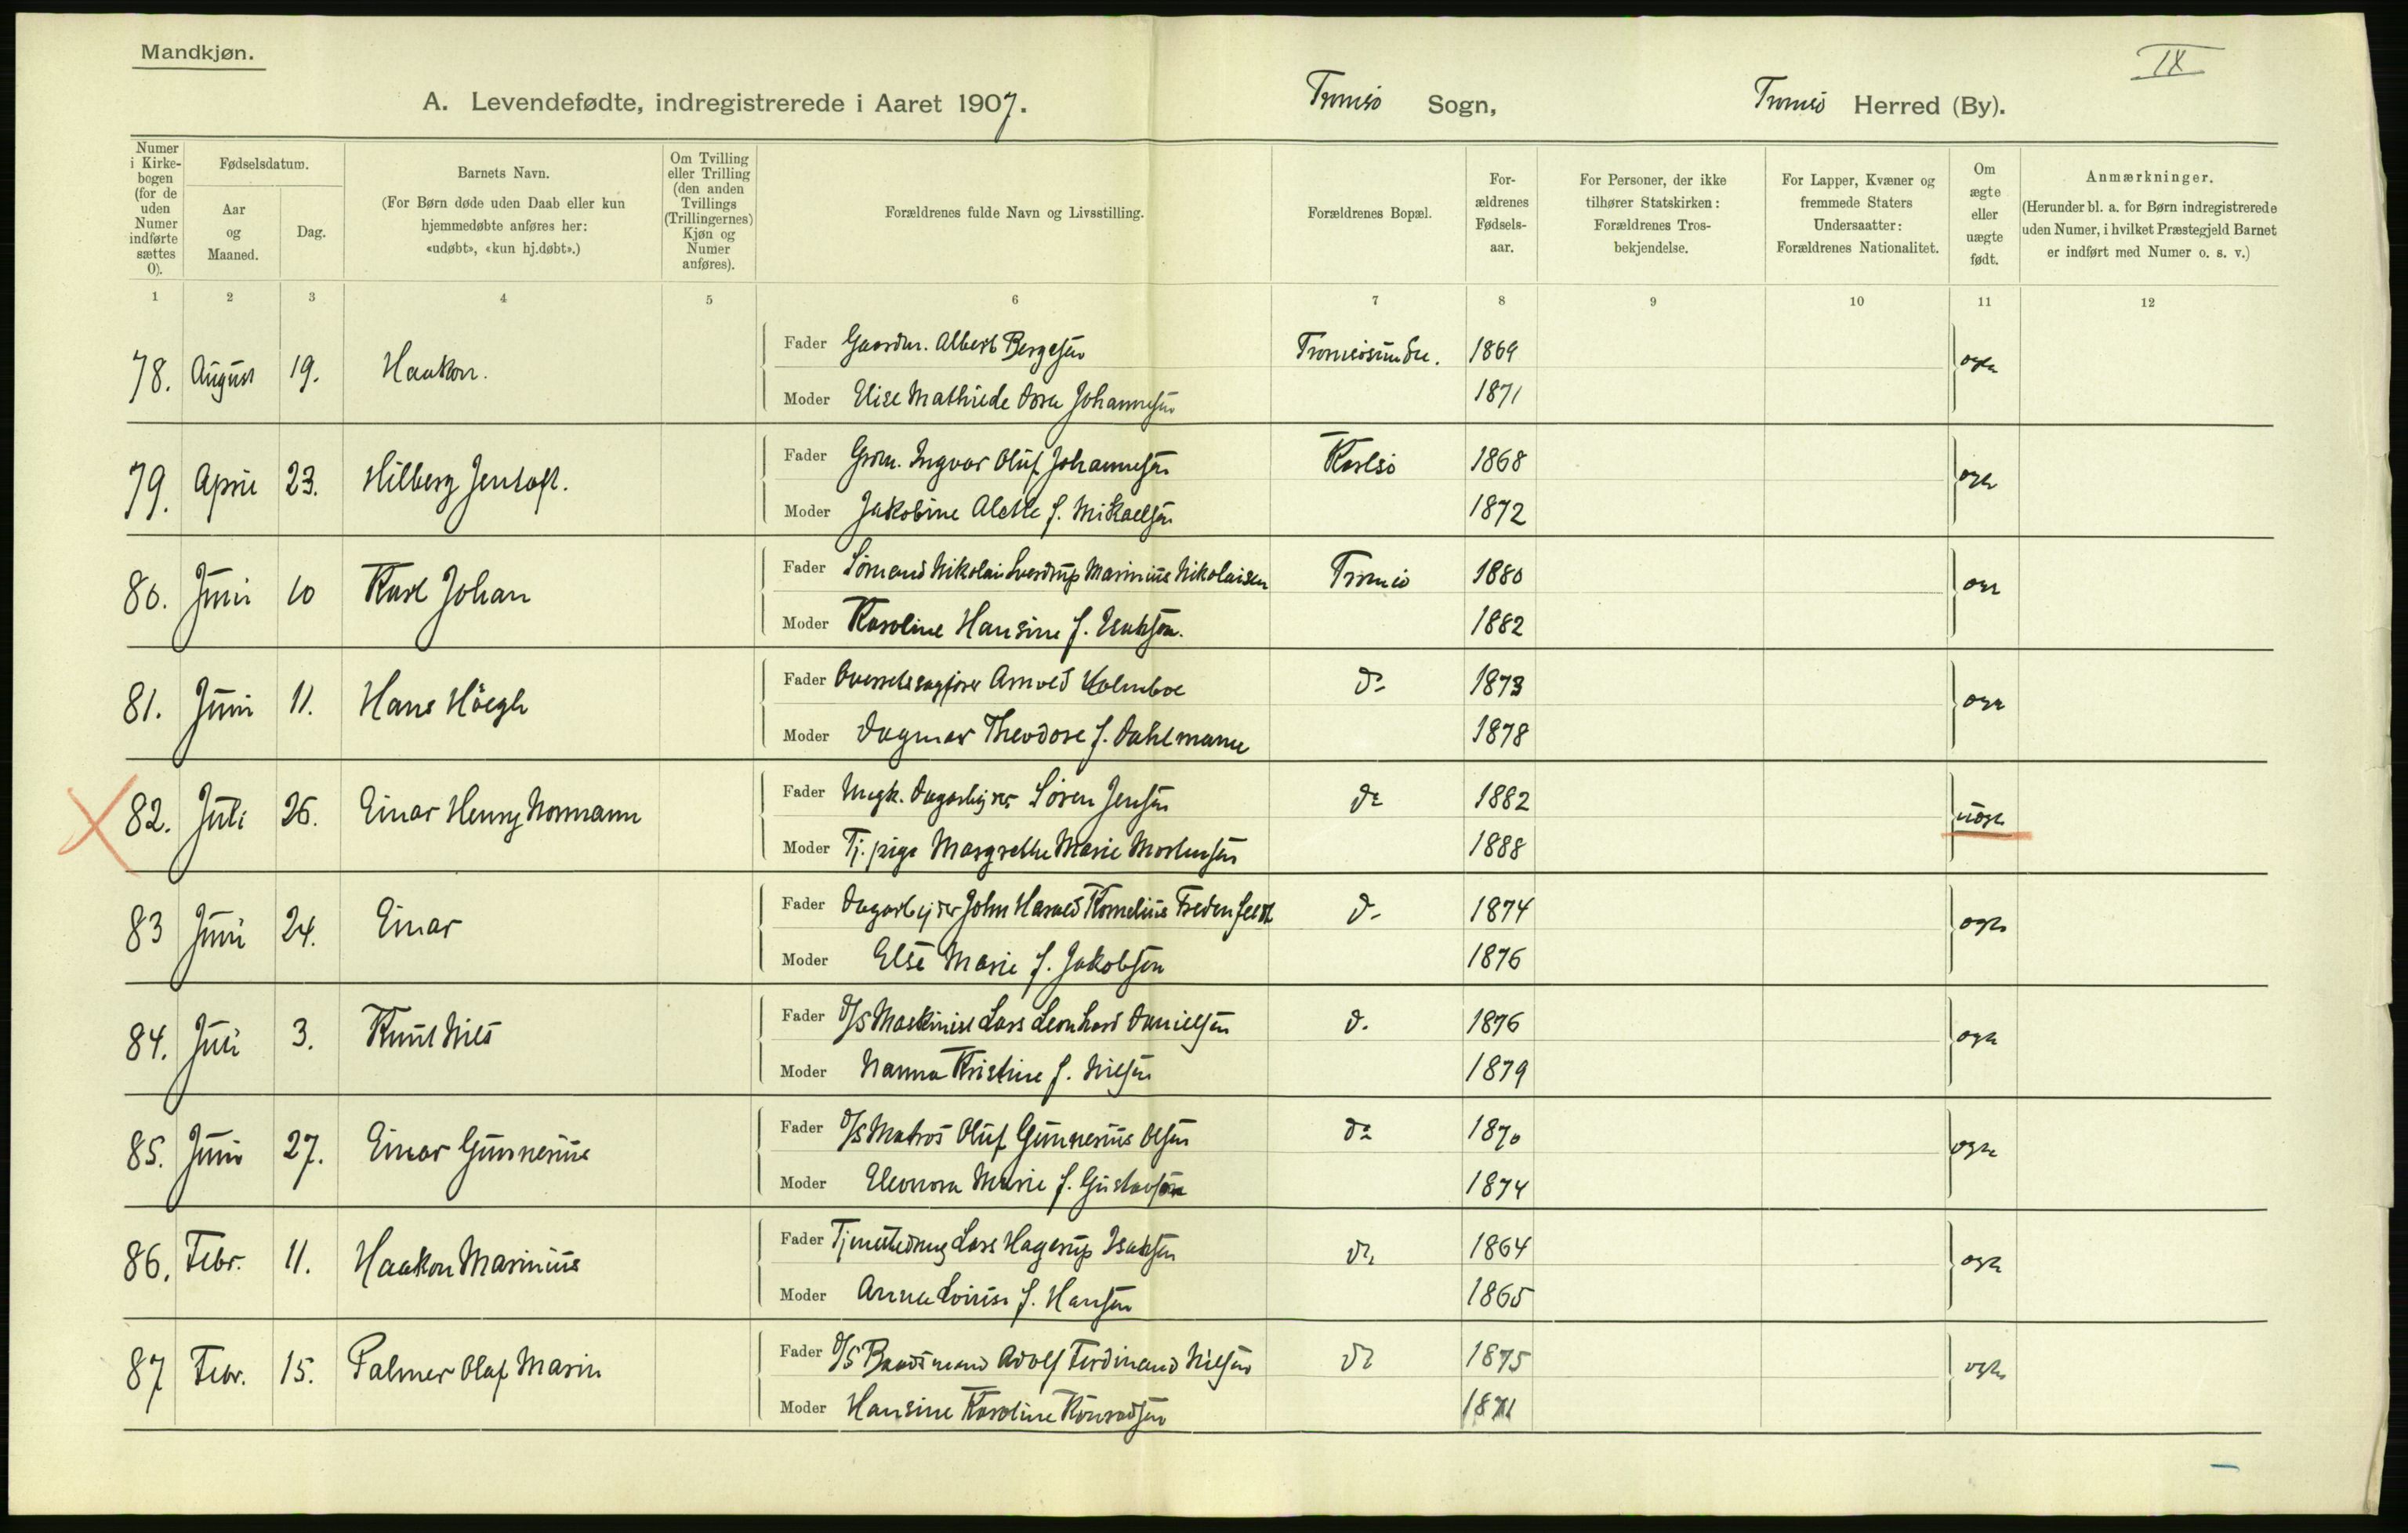 Mandkjøn.
IX
A. Levendefødte, indregistrerede i Aaret 1907.
Tromsø Sogn,
Tromsø Herred (By).
Numer i Kirkebogen (for de uden Numer indførte sættes 0).
Fødselsdatum.
Aar og Maaned.
Dag.
Barnets Navn.
(For Børn døde uden Daab eller kun hjemmedøbte anføres her: «udøbt», «kun hj.døbt».)
Om Tvilling eller Trilling (den anden Tvillings (Trillingernes) Kjøn og Numer anføres).
Forældrenes fulde Navn og Livsstilling.
Forældrenes Bopæl.
Forældrenes Fødselsaar.
For Personer, der ikke tilhører Statskirken: Forældrenes Trosbekjendelse.
For Lapper, Kvæner og fremmede Staters Undersaatter: Forældrenes Nationalitet.
Om ægte eller uægte født.
Anmærkninger.
(Herunder bl. a. for Børn indregistrerede uden Numer, i hvilket Præstegjeld Barnet er indført med Numer o. s. v.)
1 2 3 4 5 6 7 8 9 10 11 12
78. August 19. Haakon. Fader Gaardm. Albert Bergesen 1869
Moder Elise Mathilde Johannesen 1871
79. April 23. Hilberg Jentoft. Fader Grdm. Ingvar Oluf Johannesen Karlsö 1868
Moder Jakobine Alette f. Mikaelsen 1872
80. Juni 10 Karl Johan Fader Sömand Nikolai Sverdrup Marinius Nikolaisen Tromsö 1880
Moder Karoline Hansine f. Isaksen. 1882
81. Juni 11. Hans Höegh Fader Overretssagförer Arnold Holmboe do 1873
Moder Dagmar Theodore f. Dahlmann 1878
82. Juli 26. Einar Henry Normann Fader Ungk. Dagarbejder Sören Jensen do 1882
Moder Tj. pige Margrethe Marie Mortensen 1888
83 Juni 24. Einar Fader Dagarbejder John Harald Kornelius Fredenfeldt do 1874
Moder Else Marie f. Jakobsen 1876
84. Juli 3. Knut Nils Fader D/S Maskinist Lars Leonhard Danielsen do 1876
Moder Nanna Kristine f. Nilsen 1879
85. Juni 27. Einar Gunnerius Fader D/S Matros Oluf Gunnerius Olsen do 1870
Moder Eleonora Marie f. Gustavsen 1874
86. Febr. 11. Haakon Marinius Fader Lars Hagerup Isaksen do 1864
Moder Anna Lovise f. Hansen 1865
87 Febr. 15. Palmer Olaf Marin Fader D/S Baadsmand Adolf Ferdinand Nilsen do 1875
Moder Hansine Karoline Konradsen 1871